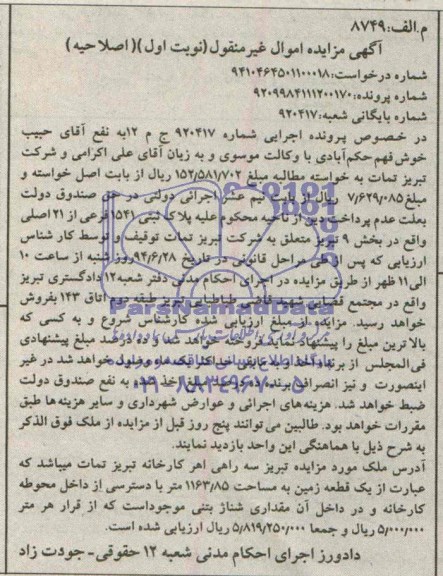 م.الف:۸۷۴۹
آگهی مزایده اموال غیرمنقول(نوبت اول)(اصلاحیه)
شماره درخواست:۹۴۱۰۴۶۴۵۰۱۱۰۰۰۱۸
شماره پرونده:۹۲۰۹۹۸۴۱۱۱۲۰۰۱۷۰
شماره بایگانی شعبه:۹۲۰۴۱۷
در خصوص پرونده اجرایی شماره ۹۲۰۴۱۷ ج م ۱۲به نفع آقای حبیب
خوش فهم حکم‌آبادی با وکالت موسوی و به زیان آقای علی اکرامی و شرکت
تبریز تمات به خواسته مطالبه مبلغ ۱۵۲/۵۸۱/۷۰۲ ریال از بابت اصل خواسته و
مبلغ ۷/۶۲۹/۰۸۵ ریال از بابت نیم عشر اجرائی دولتی در حق صندوق دولت
بعلت عدم پرداخت دین از ناحیه محکوم علیه پلاک ثبتی ۱۵۴۱ فرعی از ۲۱ اصلی
واقع در بخش ۹ تبریز متعلق به شرکت تبریز تمات توقیف و توسط کار شناس
ارزیابی که پس از طی مراحل قانونی در تاریخ ۹۴/۶/۲۸ روز شنبه از ساعت ۱۰
الی۱۱ ظهر از طریق مزایده در اجرای احکام مدنی دفتر شعبه۱۲ دادگستری تبریز
واقع در مجتمع قضایی شهید قاضی طباطبایی تبریز طبقه دوم اتاق ۱۴۳ بفروش
خواهد رسید. مزایده از مبلغ ارزیابی شده کارشناس شروع و به کسی که
بالا ترین مبلغ را پیشنهاد نماید فروخته خواهد شد. ده درصد مبلغ پیشنهادی
فی‌المجلس از برنده اخذ و به مابقی حداکثر یک ماه وصول خواهد شد در غیر
اینصورت و نیز انصراف برنده ده درصد مبلغ اخذ شده به نفع صندوق دولت
ضبط خواهد شد. هزینه‌های اجرائی و عوارض شهرداری و سایر هزینه‌ها طبق
مقررات خواهد بود. طالبین می‌توانند پنج روز قبل از مزایده از ملک فوق الذکر
به شرح ذیل با هماهنگی این واحد بازدید نمایند.
آدرس ملک مورد مزایده تبریز سه راهی اهر کارخانه تبریز تمات میباشد که
عبارت از یک قطعه زمین به مساحت ۱۱۶۳/۸۵ متر با دسترسی از داخل محوطه
کارخانه و در داخل آن مقداری شناژ بتنی موجوداست که از قرار هر متر
۵/۰۰۰/۰۰۰ ریال و جمعا ۵/۸۱۹/۲۵۰/۰۰۰ ریال ارزیابی شده است.
دادورز اجرای احکام مدنی شعبه ۱۲ حقوقی- جودت زاد
ParsNamadData
۰۲۱-۸۸۳۴۹۶۷۰-۵